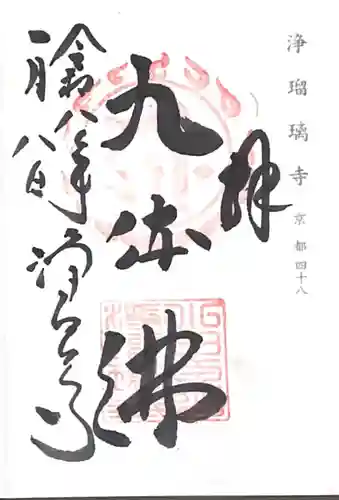 浄瑠璃寺 京都四十八
拝
九体佛
令和八年
一月八日
浄瑠璃寺